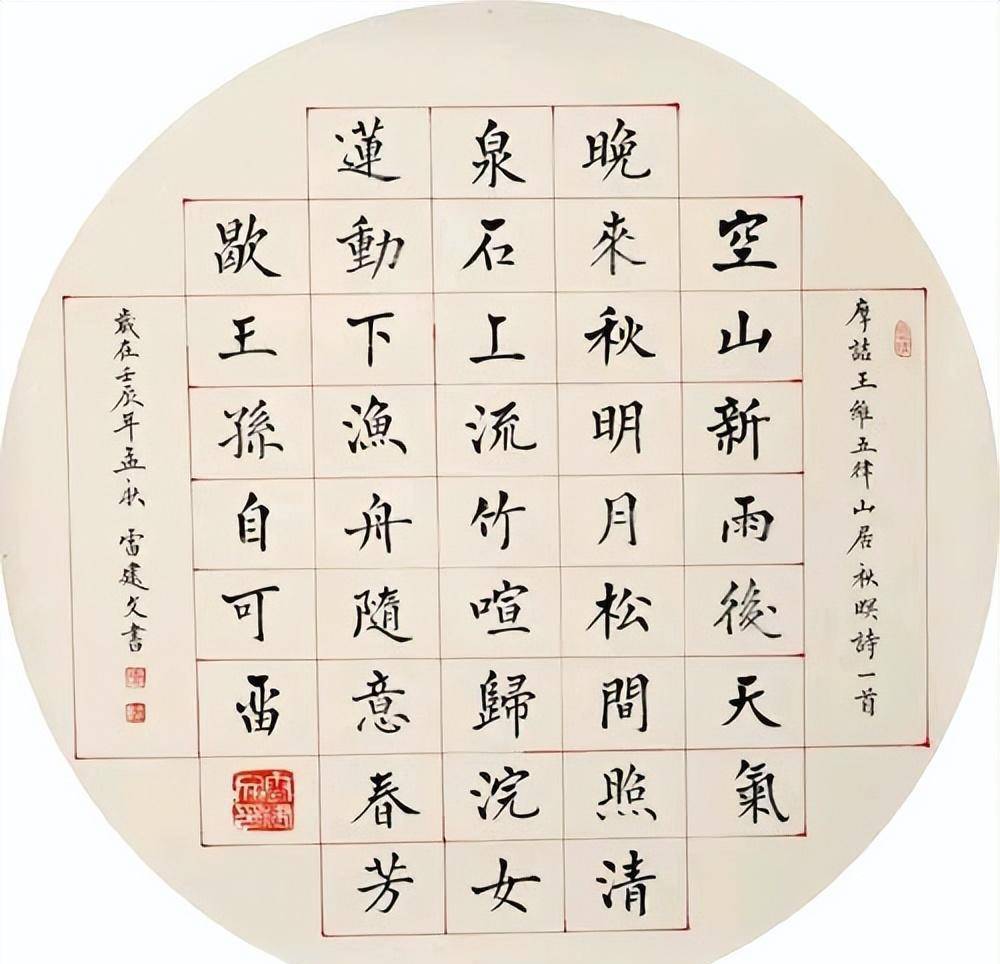 摩詰王維五律山居秋暝詩一首
空山新雨後天氣
晚來秋明月松間照清
泉石上流竹喧歸浣女
蓮動下漁舟隨意春芳
歇王孫自可畱
歲在壬辰年孟秋 雷建文書